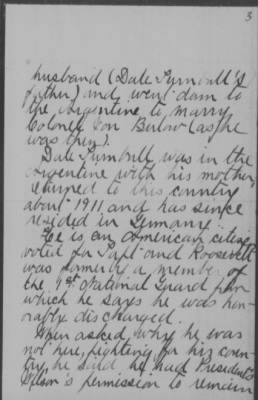 3
husband (Dale Turnbull's
father) and went down to
the Argentine to marry
Colonel von Below (as he
was then).
Dale Turnbull was in the
Argentine with his mother
returned to this country
about 1911 and has since
resided in Germany.
He is an American citizen
voted for Taft and Roosevelt
was formerly a member of
the National Guard from
which he says he was hon-
orably discharged.
When asked why he was
not here, fighting for his coun-
try he said he had President
Wilson's permission to remain